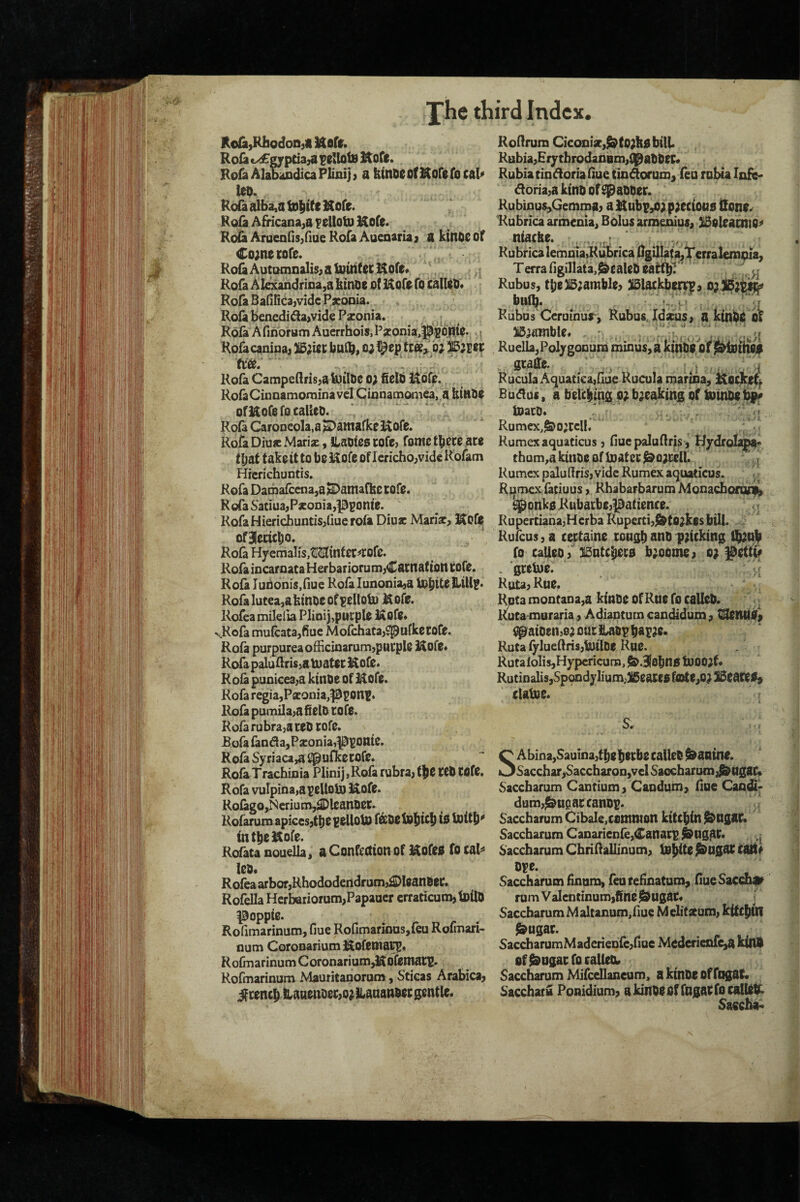 The third Index.
Rosa, Rhodon, a Rose.
Rosa Ægyptia, a yellow Rose.
Rosa Alabandica Plinij, a kinde of Rose so cal-
led.
Rosa alba, a white Rose.
Rosa Africana, a yellow Rose.
Rosa Aruensis, siue Rosa Auenaria, a kinde of
Corne rose.
Rosa Autumnalis, a winter Rose.
Rosa Alexandrina, a kinde of Rose so called.
Rosa Basilica, vide Pæonia.
Rosa benedicta, vide Pæonia.
Rosa Asinorum Auerrhois, Pæonia, Pyonie.
Rosa canina, Brier bush, or Hep tree, or Bryer
tree.
Rosa Campestris, a wilde or field Rose.
Rosa Cinnamomina vel Cinnamomea, a kinde
of Rose so called.
Rosa Caroneola, a Damaske Rose.
Rosa Diuæ Mariæ, Ladies rose, some there are
that take it to be Rose of Iericho, vide Rosam
Hierichuntis.
Rosa Damascena, a Damaske rose.
Rosa Satiua, Pæonia, Pyonie.
Rosa Hierichuntis, siue rosa Diuæ Mariæ, Rose
of Iericho.
Rosa Hyemalis, Winter-rose.
Rosa incarnata Herbariorum, Carnation rose.
Rosa Iunonis, siue Rosa Iunonia, a white Lilly.
Rosa lutea, a kinde of yellow Rose.
Rosea milesia Plinij, purple Rose.
Rosa muscata, siue Moschata, Muske rose.
Rosa purpurea officinarum, purple Rose.
Rosa palustris, a water Rose.
Rosa punicea, a kinde of Rose.
Rosa regia, Pæonia, Pyony.
Rosa pumila, a field rose.
Rosa rubra, a red rose.
Bosa sancta, Pæonia, Pyonie.
Rosa Syriaca, a Muske rose.
Rosa Trachinia Plinij, Rosa rubra, the red rose.
Rosa vulpina, a yellow Rose.
Rosago, Nerium, Oleander.
Rosarum apices, the yellow seede which is with-
in the Rose.
Rosata nouella, a Confection of Roses so cal-
led.
Rosea arbor, Rhododendrum, Oleander.
Rosella Herbariorum, Papauer erraticum, wild
Poppie.
Rosimarinum, siue Rosimarinus, seu Rosmari-
num Coronarium Rosemary.
Rosmarinum Coronarium, Rosemary.
Rosmarinum Mauritanorum, Sticas Arabica,
French Lauender, or Lauander gentle.
Rostrum Ciconiæ, Storkes bill.
Rubia, Erythrodanum, Madder.
Rubia tinctoria siue tinctorum, seu rubia Infe-
ctoria, a kind of Madder.
Rubinus, Gemma, a Ruby, or precious stone.
Rubrica armenia, Bolus armenius, Boleacmo-
niacke.
Rubrica lemnia, Rubrica sigillata, Terra lempia,
Terra sigillata, Sealed earth.
Rubus, the Bramble, Blackberry, or Bryer
bush.
Rubus Ceruinus, Rubus Idæus, a kinde of
Bramble.
Ruella, Polygonum minus, a kinde of Swines
grasse.
Rucula Aquatica, siue Rucula marina, Rocket.
Buctus, a belching or breaking of winde vp-
ward.
Rumex, Sorrell.
Rumex aquaticus, siue palustris, Hydrolapa-
thum, a kinde of water Sorrell.
Rumex palustris, vide Rumex aquaticus.
Rumex satiuus, Rhabarbarum Monachorum,
Monks Rubarbe, Patience.
Rupertiana, Herba Ruperti, Storkes bill.
Ruscus, a certaine rough and pricking shrub
so called, Butchers broome, or Petti-
gretue.
Ruta, Rue.
Ruta montana, a kinde of Rue so called.
Ruta muraria, Adiantum candidum, Venus,
Maiden, or our Lady hayre.
Ruta sylvestris, wilde Rue.
Ruta solis, Hypericum, S. Iohns woort.
Rutinalis, Spondylium, Beares foote, or Beares
clawe.
S.
SAbina, Sauina, the herbe called Sauine.
Sacchar, Saccharon, vel Saocharum, Sugar.
Saccharum Cantium, Candum, siue Candi-
dum, Sugar candy.
Saccharum Cibale, common kitchin Sugar.
Saccharum Canariense, Canary Sugar.
Saccharum Christallinum, white Sugar can-
dye.
Saccharum finum, seu refinatum, siue Saccha-
rum Valentinum, fine Sugar.
Saccharum Maltanum, siue Melitæum, kitchin
Sugar.
Saccharum Maderiense, siue Mederiense, a kind
of Sugar so called.
Saccharum Miscellaneum, a kinde of sugar.
Saccharū Ponidium, a kinde of sugar so called.
Saccha-